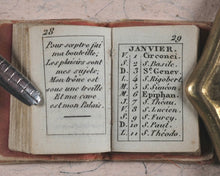 28
Pour sceptre j'ai
ma bouteille,
Les plaisirs sont
mes sujets,
Mon trône est
sous une treille
Et ma cave
est mon Palais.
29
JANVIER.
V. 1 Circonci.
S. 2 S. Basile.
D. 3 Ste Genev.
L. 4 S. Rigobert
M. 5 S. Siméon
M. 6 Epiphan.
J. 7 S. Théau.
V. 8 S. Lucien.
S. 9 S. Furcy.
D. 10 S. Paul.
L. 11 S. Théodo.